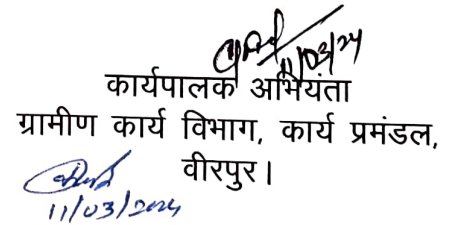 11/03/24
कार्यपालक अभियंता
ग्रामीण कार्य विभाग, कार्य प्रमंडल,
वीरपुर।
11/03/2024